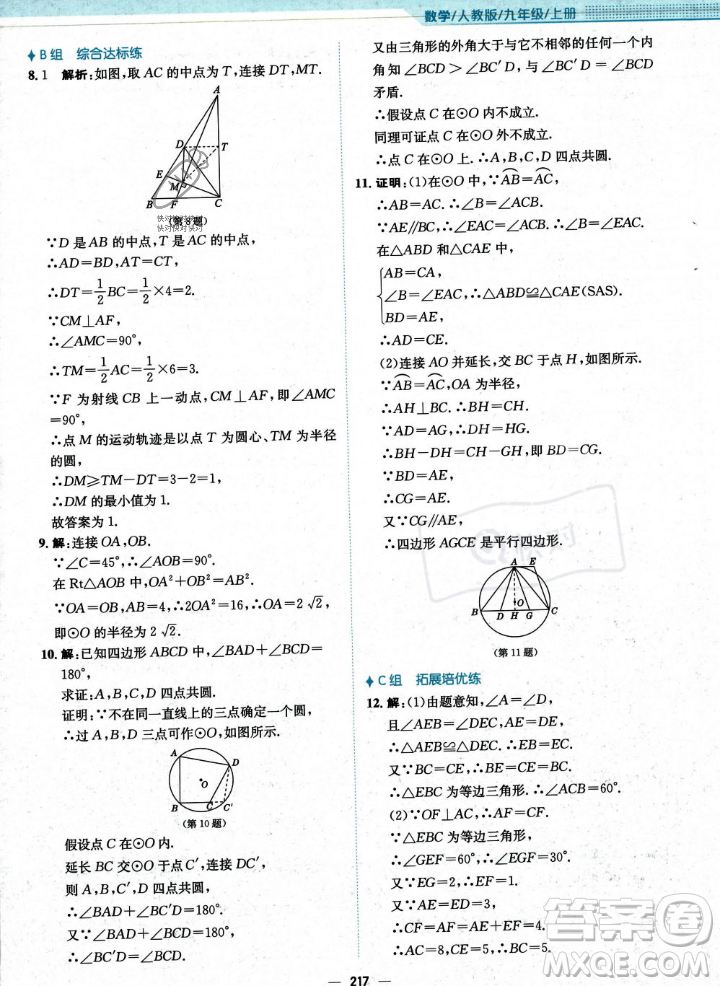 数学/人教版/九年级/上册
B组 综合达标练
8.1 解析:如图,取 AC 的中点为 T,连接 DT,MT.
A
D
T
E
M
B
F
C
(第8题)
快对快对快对
快对快对快对
∵D 是 AB 的中点,T 是 AC 的中点,
∴AD=BD,AT=CT,
∴DT=1/2BC=1/2×4=2.
∵CM⊥AF,
∴∠AMC=90°,
∴TM=1/2AC=1/2×6=3.
∵F 为射线 CB 上一动点,CM⊥AF,即∠AMC
=90°,
∴点 M 的运动轨迹是以点 T 为圆心、TM 为半径
的圆,
∴DM≥TM-DT=3-2=1,
∴DM 的最小值为 1.
故答案为 1.
9.解:连接 OA,OB.
∵∠C=45°,∴∠AOB=90°.
在 Rt△AOB 中,OA²+OB²=AB².
∵OA=OB,AB=4,∴2OA²=16,∴OA=2√2,
即⊙O 的半径为 2√2.
10.解:已知四边形 ABCD 中,∠BAD+∠BCD=
180°,
求证:点 A,B,C,D 四点共圆.
证明:∵不在同一直线上的三点确定一个圆,
∴过 A,B,D 三点可作⊙O,如图所示.
A
D
O
B
C
C′
(第10题)
假设点 C 在⊙O 内.
延长 BC 交⊙O 于点 C′,连接 DC′,
则 A,B,C′,D 四点共圆,
∴∠BAD+∠BC′D=180°.
又∵∠BAD+∠BCD=180°,
∴∠BC′D=∠BCD.
又由三角形的外角大于与它不相邻的任意一个内
角知∠BCD>∠BC′D,与∠BC′D=∠BCD
矛盾.
∴假设点 C 在⊙O 内不成立.
同理可证点 C 在⊙O 外不成立.
∴点 C 在⊙O 上.∴A,B,C,D 四点共圆.
11.证明:(1)在⊙O 中,∵⌒AB=⌒AC,
∴AB=AC.∴∠B=∠ACB.
∵AE∥BC,∴∠EAC=∠ACB.∴∠B=∠EAC.
在△ABD 和△CAE 中,
AB=CA,
∠B=∠EAC,∴△ABD≌△CAE(SAS).
BD=AE,
∴AD=CE.
(2)连接 AO 并延长,交 BC 于点 H,如图所示.
∵⌒AB=⌒AC,OA 为半径,
∴AH⊥BC.∴BH=CH.
又∵AD=AG,∴DH=HG.
∴BH-DH=CH-GH,即 BD=CG.
∵BD=AE,
∴CG=AE.
又∵CG∥AE,
∴四边形 AGCE 是平行四边形.
快对
A
E
O
B
D
H
G
C
(第11题)
C组 拓展培优练
12.解:(1)由题意知,∠A=∠D,
且∠AEB=∠DEC,AE=DE,
∴△AEB≌△DEC.∴EB=EC.
又∵BC=CE,∴BE=CE=BC,
∴△EBC 为等边三角形,∴∠ACB=60°.
(2)∵OF⊥AC,∴AF=CF.
∵△EBC 为等边三角形,
∴∠GEF=60°,∴∠EGF=30°.
又∵EG=2,∴EF=1.
又∵AE=ED=3,
∴CF=AF=4,∴AC=8,
∴CE=5.又∵BC=CE,∴BC=5.
答案圈
MXQE.COM
217